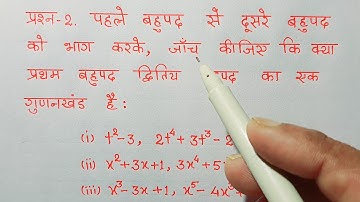 प्रश्न-2. पहले बहुपद से दूसरे बहुपद
को भाग करके, जाँच कीजिए कि क्या
प्रथम बहुपद द्वितिय पद का एक
गुणनखंड है :
(i) t²-3, 2t⁴+3t³-2
(ii) x²+3x+1, 3x⁴+5
(iii) x³-3x+1, x⁵-4x³